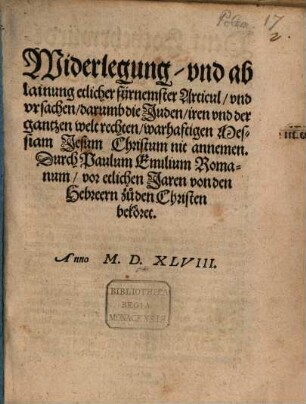 Polem. 17
2.
Widerlegung / vnd ab
lainung etlicher fürnemster Articul / vnd
vrsachen / darumb die Juden / iren vnd der
gantzen welt rechten / warhafftigen Mes-
siam Jesum Christum nit annemen.
Durch Paulum Emilium Roma-
num / vor etlichen Jaren von den
Hebreern zů den Christen
bekôret.
Anno M. D. XLVIII.
BIBLIOTHECA
REGIA
MONACENSIS